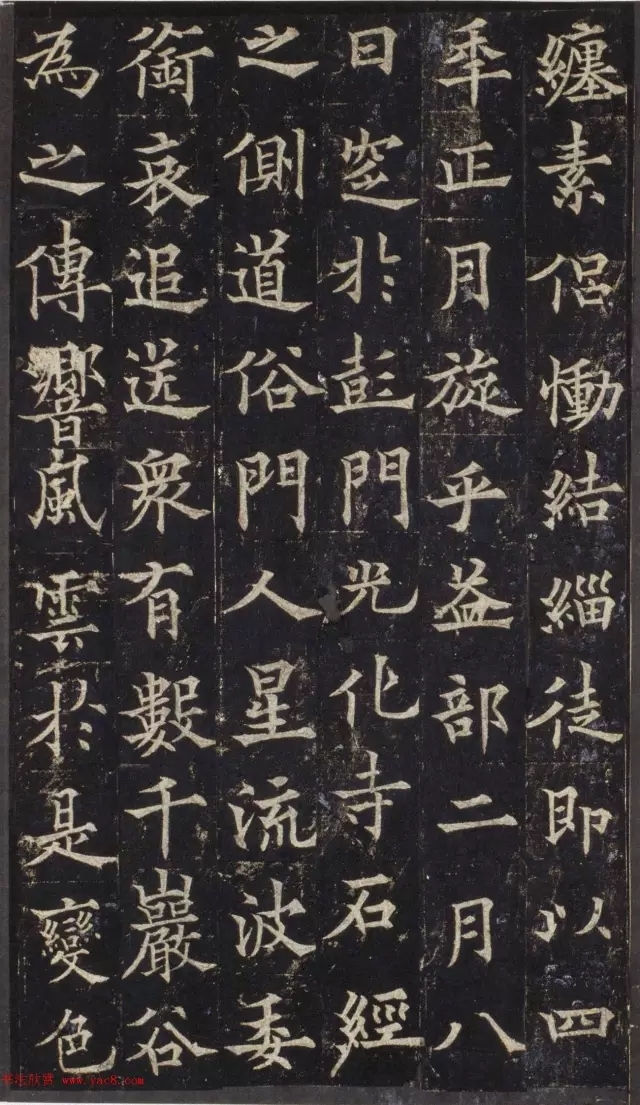 纏素侣慟結緇徒即以四
秊正月旋乎益部二月八
日窆於彭門光化寺石經
之側道俗門人星流波委
銜哀追送衆有數千巖谷
為之傳響風雲於是變色
书法欣赏 www.yac8.com